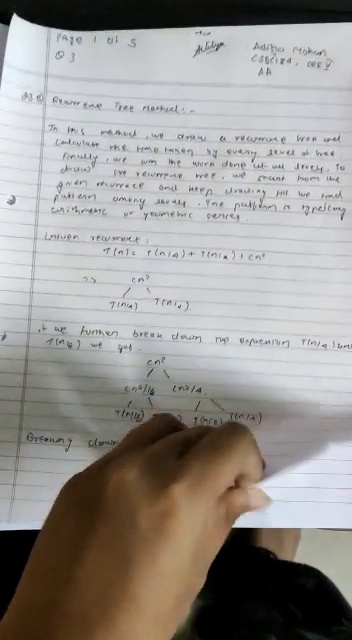 Page 1 of 5
Q 3
Aditya Mohan
AA
Recurrence Tree Method :-
In this method, we draw a recurrence tree and
calculate the time taken by every level of tree
Finally, we sum the work done at all levels. To
draw the recurrence tree, we start from the
given recurrence and keep drawing till we find
pattern among levels. The pattern is typically
arithmetic or geometric series.
Given recurrence :
T(n) = T(n/4) + T(n/2) + cn²
=> cn²
T(n/4) T(n/2)
If we further break down the expression T(n/4) and
T(n/2) we get.
cn²
cn²/16 cn²/4
T(n/16) T(n/8) T(n/4)
Breaking down